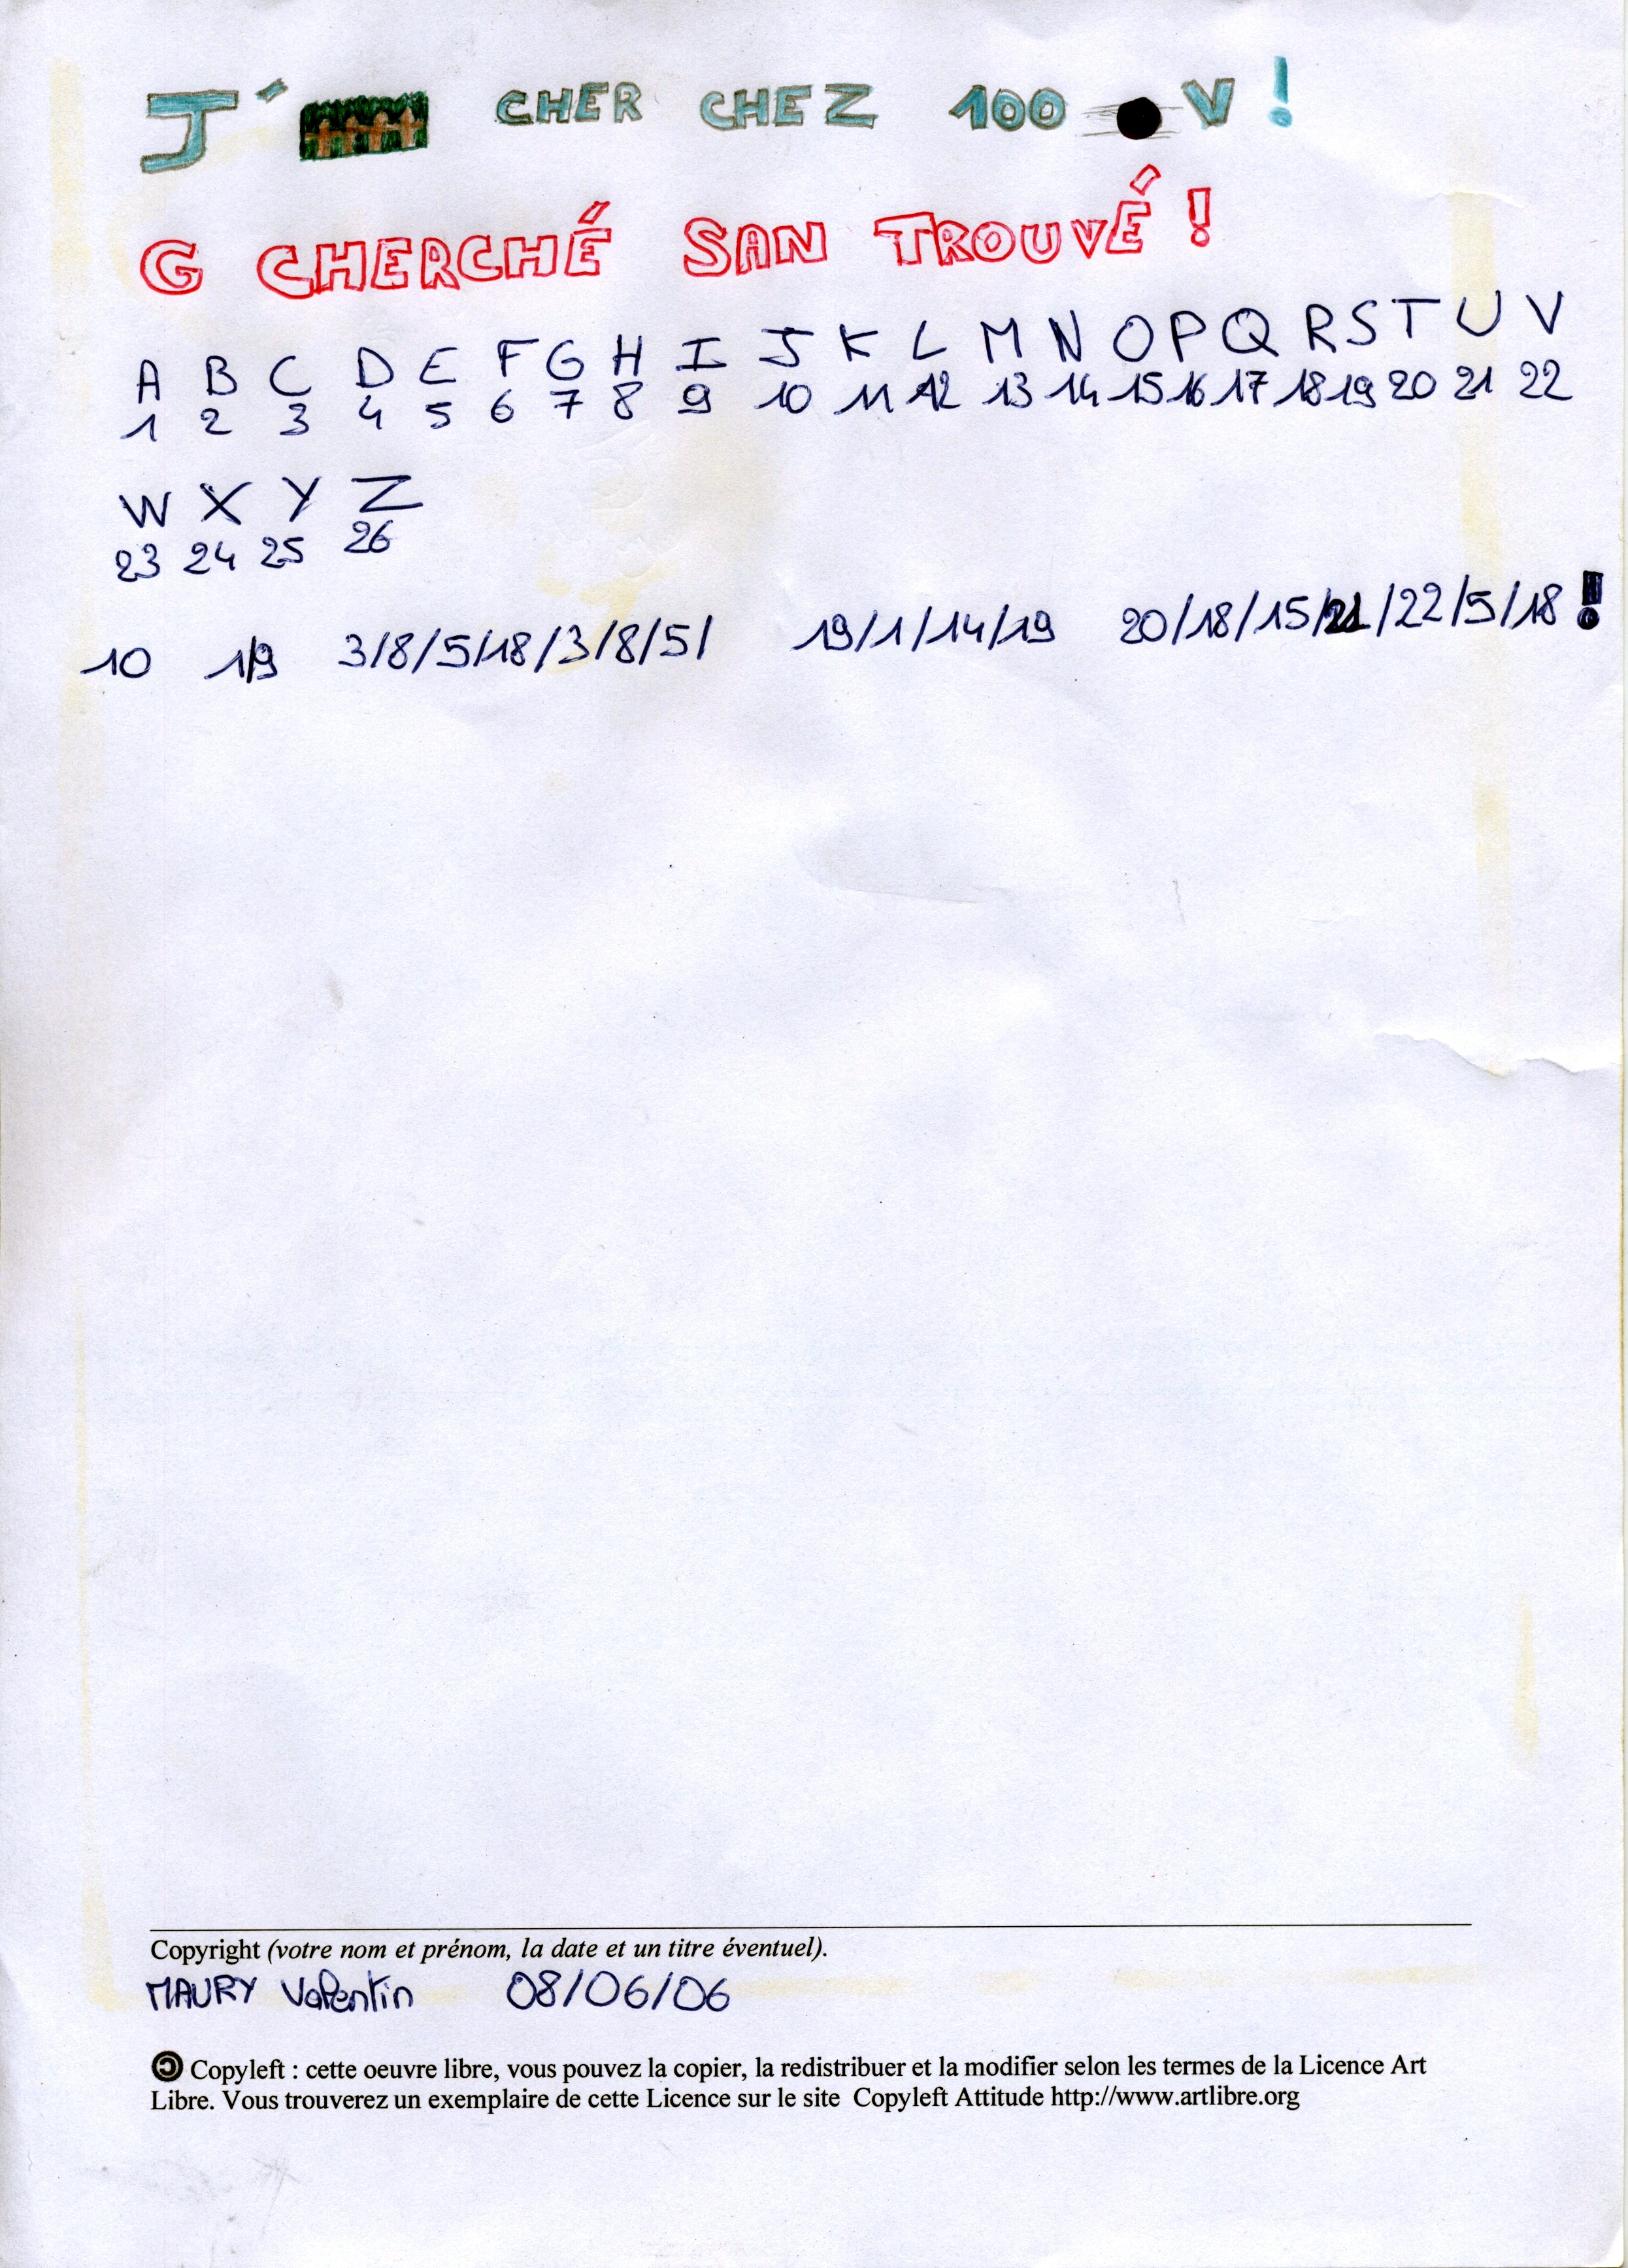 J' CHER CHEZ 100 V !
G CHERCHÉ SAN TROUVÉ !
A B C D E F G H I J K L M N O P Q R S T U V
1 2 3 4 5 6 7 8 9 10 11 12 13 14 15 16 17 18 19 20 21 22
W X Y Z
23 24 25 26
10 1/9 3/8/5/18/3/8/5/ 19/1/14/19 20/18/15/21/22/5/18 !
Copyright (votre nom et prénom, la date et un titre éventuel).
MAURY Valentin 08/06/06
Copyleft : cette oeuvre libre, vous pouvez la copier, la redistribuer et la modifier selon les termes de la Licence Art
Libre. Vous trouverez un exemplaire de cette Licence sur le site Copyleft Attitude http://www.artlibre.org